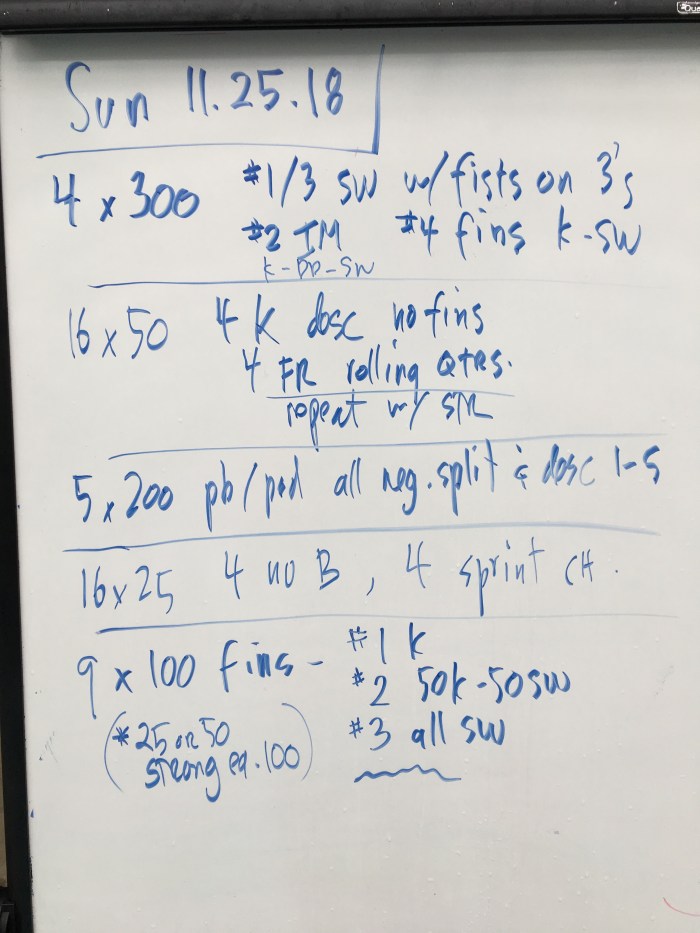 Sun 11.25.18
4 x 300 #1/3 SW w/fists on 3's
#2 IM #4 fins K-SW
K-DD-SW
16 x 50 4 K desc no fins
4 FR rolling QTRS.
repeat w/ STR
5 x 200 pb/pad all neg. split & desc 1-5
16x25 4 no B, 4 sprint CH.
9 x 100 fins - #1 K
#2 50K-50SW
#3 all SW
(* 25 or 50
strong ea. 100)